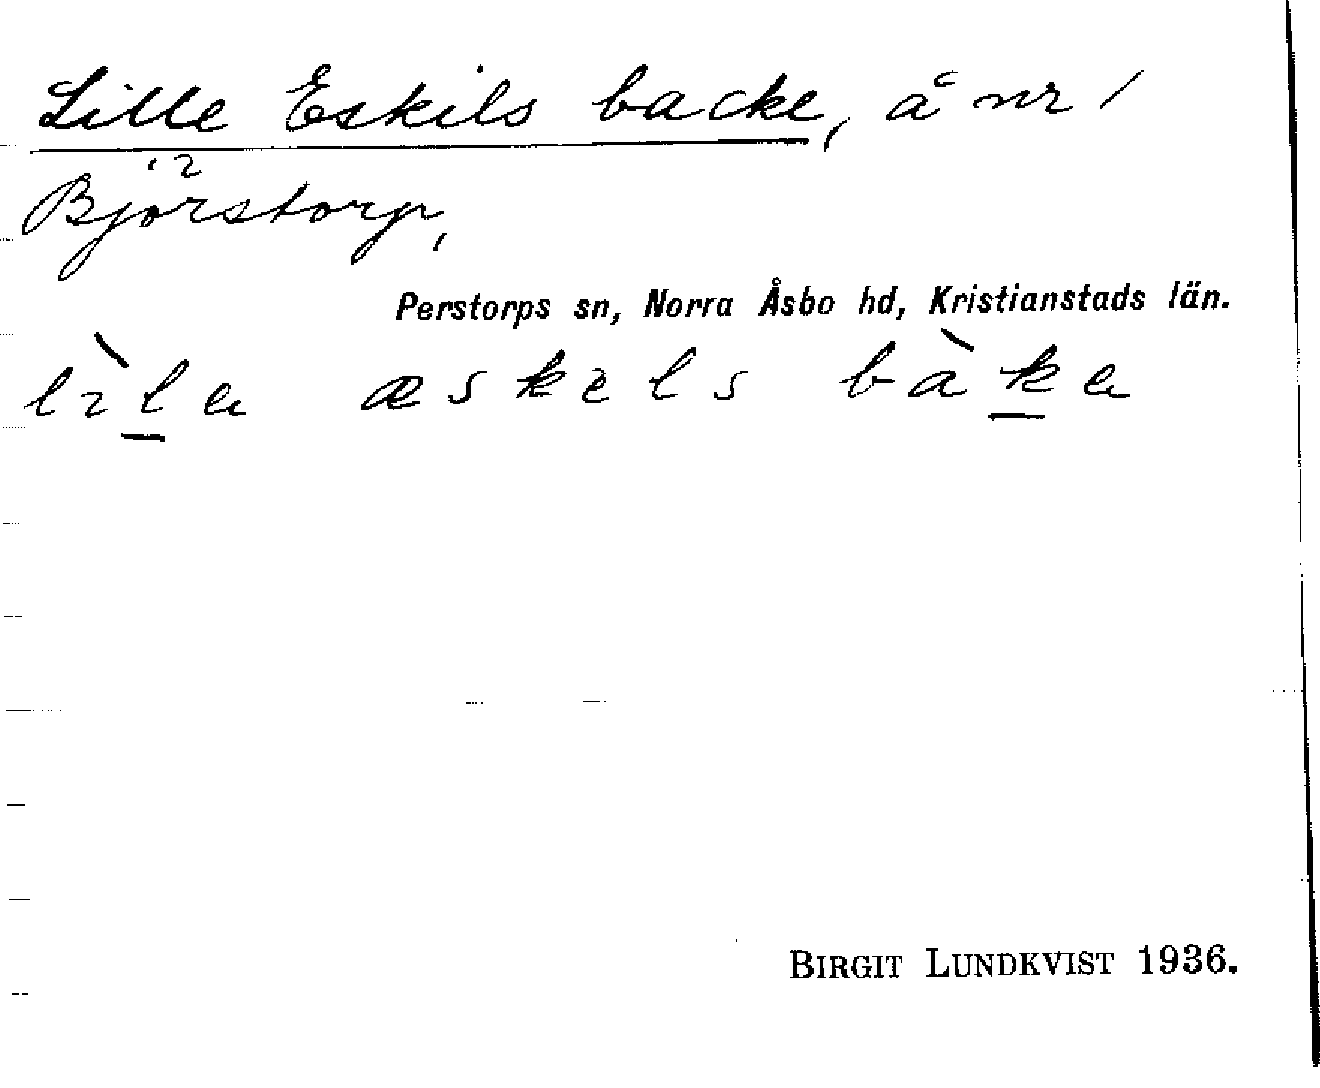 Lille Eskils backe, å nr 1
Björstorp,
Perstorps sn, Norra Åsbo hd, Kristianstads län.
lìla æskels bàka
BIRGIT LUNDKVIST 1936.